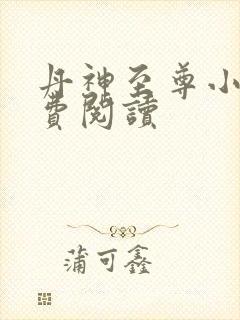 丹神至尊小
費閱讀
蒲可鑫